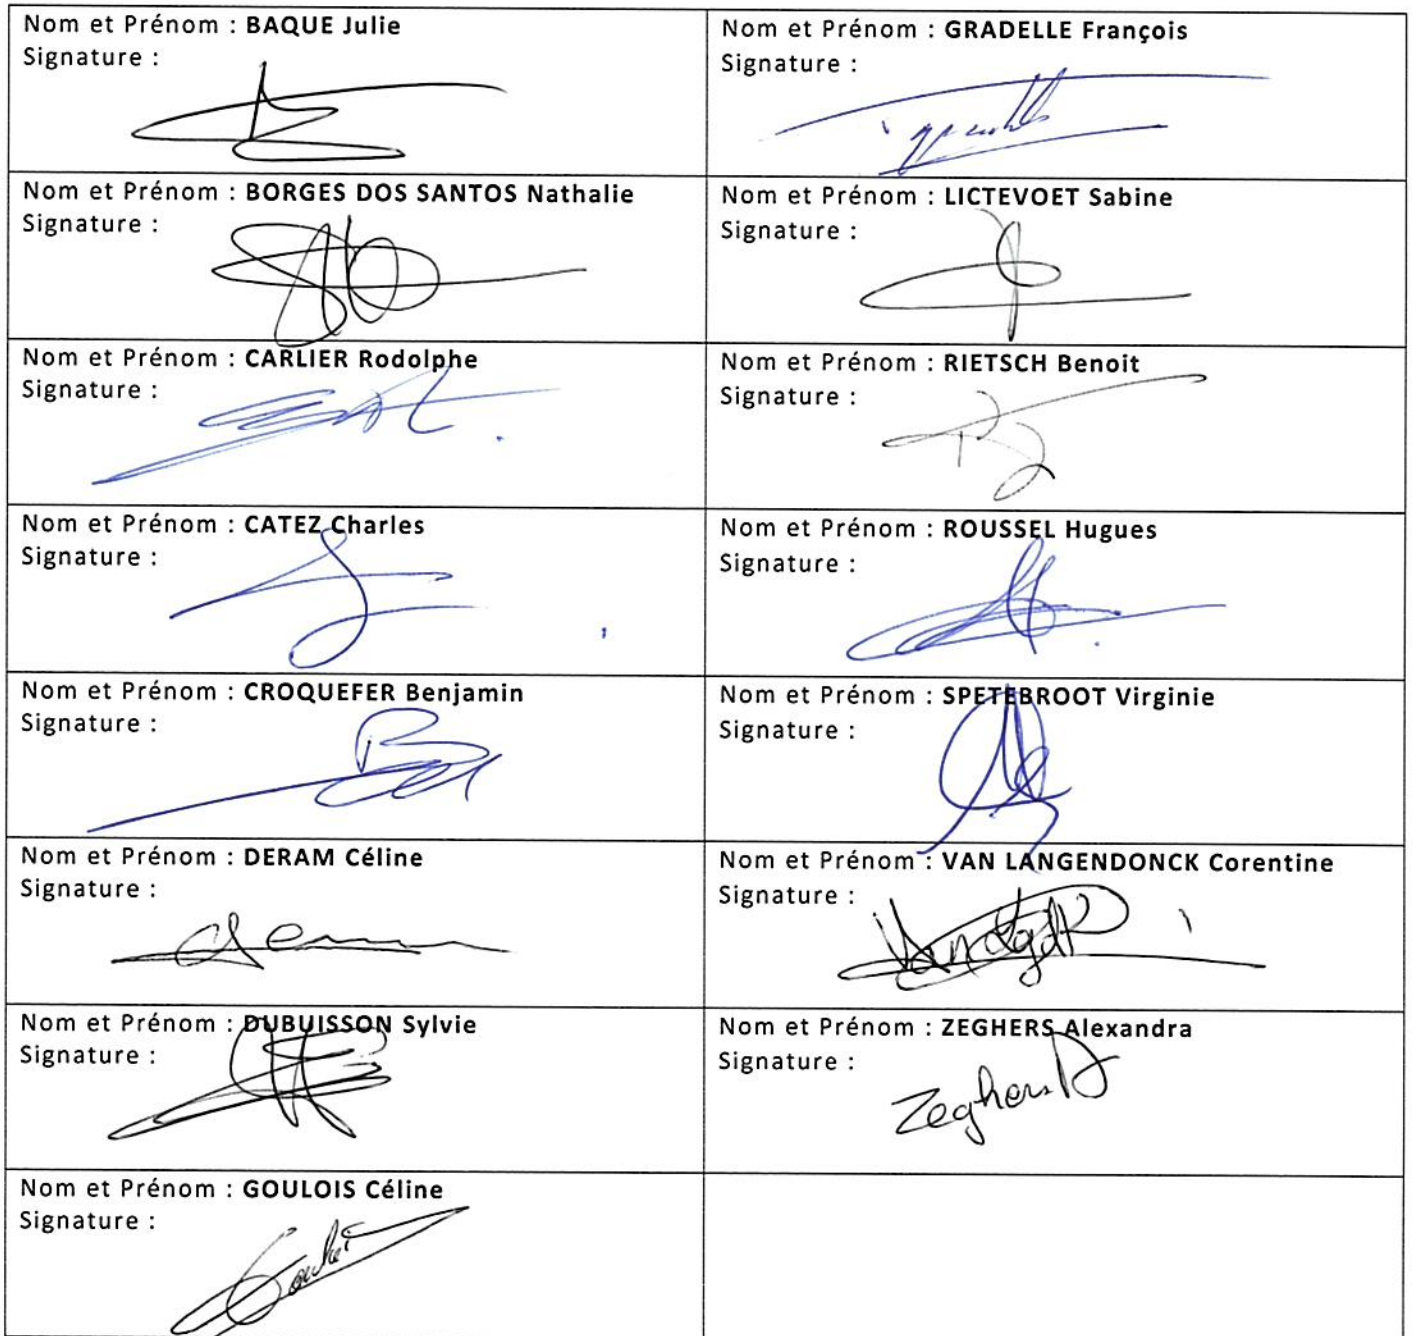 Nom et Prénom : BAQUE Julie
Signature :
Nom et Prénom : GRADELLE François
Signature :
Nom et Prénom : BORGES DOS SANTOS Nathalie
Signature :
Nom et Prénom : LICTEVOET Sabine
Signature :
Nom et Prénom : CARLIER Rodolphe
Signature :
Nom et Prénom : RIETSCH Benoit
Signature :
Nom et Prénom : CATEZ Charles
Signature :
Nom et Prénom : ROUSSEL Hugues
Signature :
Nom et Prénom : CROQUEFER Benjamin
Signature :
Nom et Prénom : SPETEBROOT Virginie
Signature :
Nom et Prénom : DERAM Céline
Signature :
Nom et Prénom : VAN LANGENDONCK Corentine
Signature :
Nom et Prénom : DUBUISSON Sylvie
Signature :
Nom et Prénom : ZEGHERS Alexandra
Signature :
Zeghers A
Nom et Prénom : GOULOIS Céline
Signature :